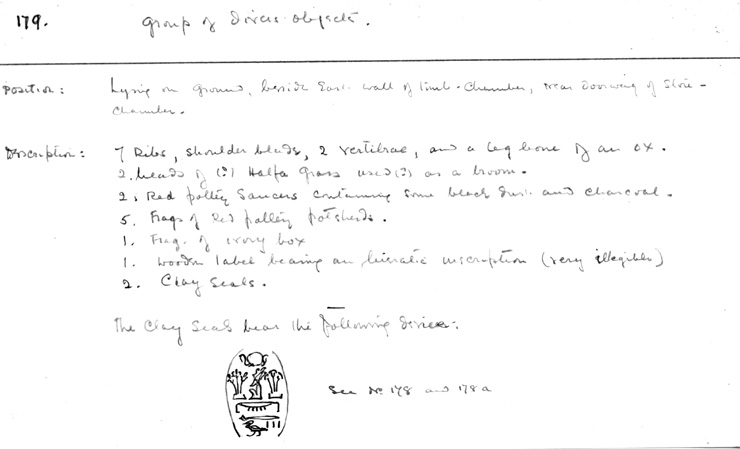 179. Group of divers objects.
Position: Lying on ground, beside East wall of Tomb-Chamber, near doorway of Store-
chamber.
Description: 7 Ribs, shoulder blade, 2 vertibrae, and a leg bone of an ox.
2. heads of (?) Halfa grass used (?) as a broom.
2. Red pottery saucers containing some black dust and charcoal.
5. Frags of Red pottery potsherds.
1. Frag. of ivory box
1. wooden label bearing an hieratic inscription (very illegible)
2. Clay Seals.
The Clay Seals bear the following device:
See No 178 and 178a